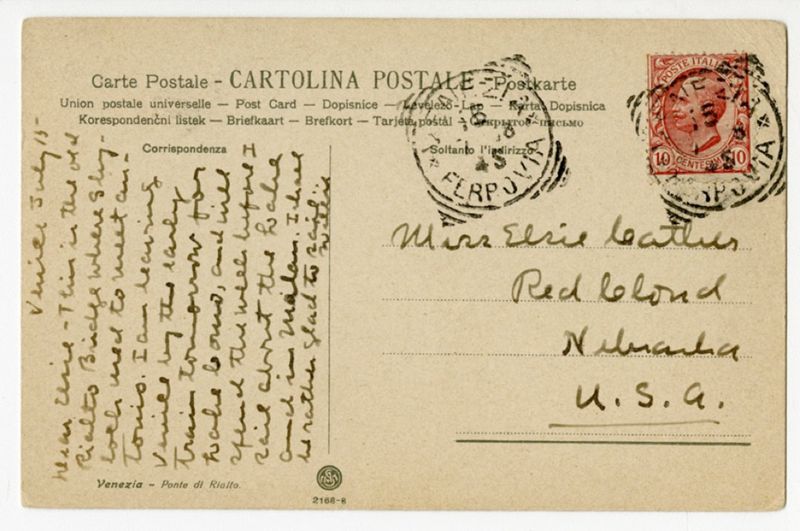 Carte Postale - CARTOLINA POSTALE - Postkarte
Union postale universelle — Post Card — Dopisnice — Levelező-Lap — Karta Dopisnica
Korespondenčni listek — Briefkaart — Brefkort — Tarjeta postal — Открытое письмо
Corrispondenza
Soltanto l'indirizzo
POSTE ITALIANE
10 CENTESIMI 10
FERROVIA
FERROVIA
Venice July 15-
Dear Elsie - This is the old
Rialto Bridge where Shy-
lock used to meet An-
tonio. I am leaving
Venice by the early
train tomorrow for
Lake Como, and will
spend the week before I
sail about the Lake
and in Milan. I shall
be rather glad to sail.
Willie
Miss Elsie Cather
Red Cloud
Nebraska
U. S. A.
Venezia - Ponte di Rialto.
2168-8